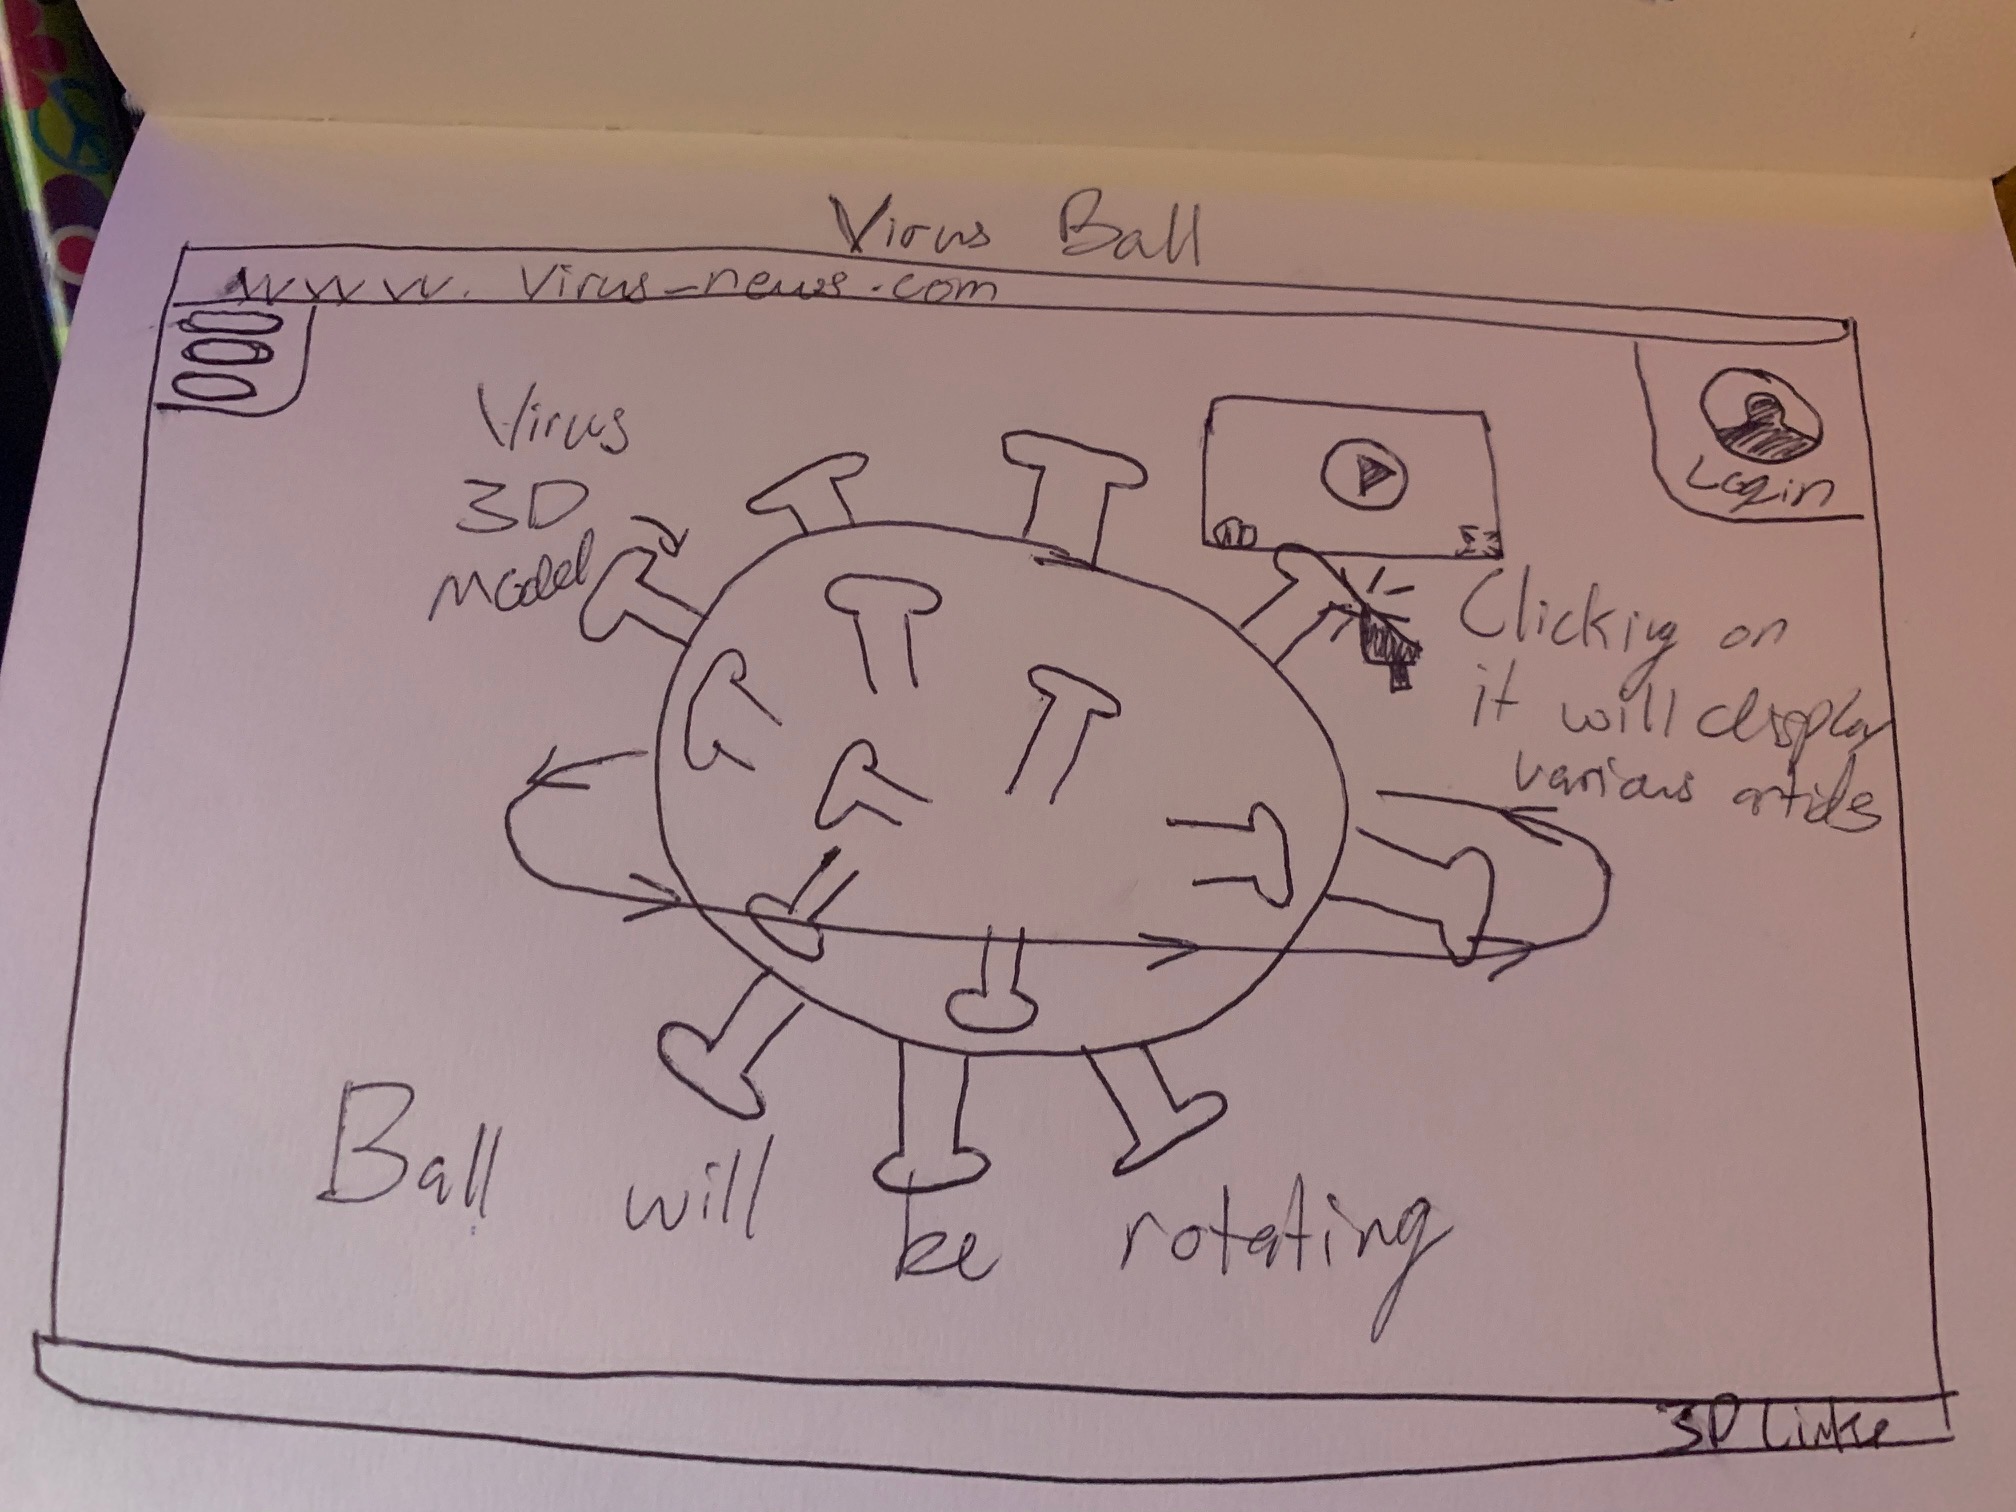 Virus Ball
www.virus-news.com
Virus
3D
Model
Login
Clicking on
it will display
various articls
Ball will be rotating
3D Links